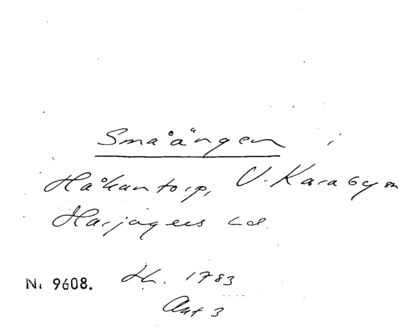 Småängen i
Håkantorp, V. Karaby sn
Harjagers hd.
Nr 9608. Lh. 1783
Akt 3